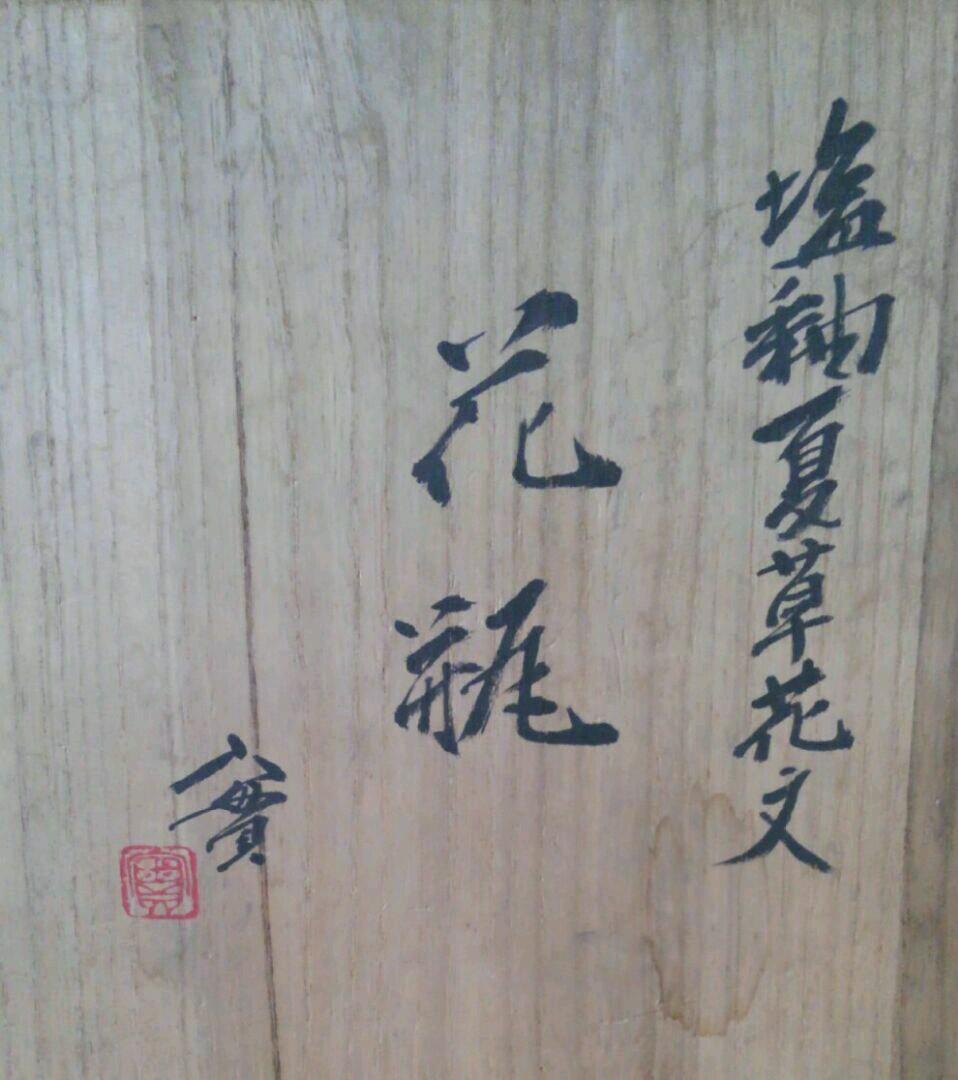 塩釉夏草花文
花瓶
實